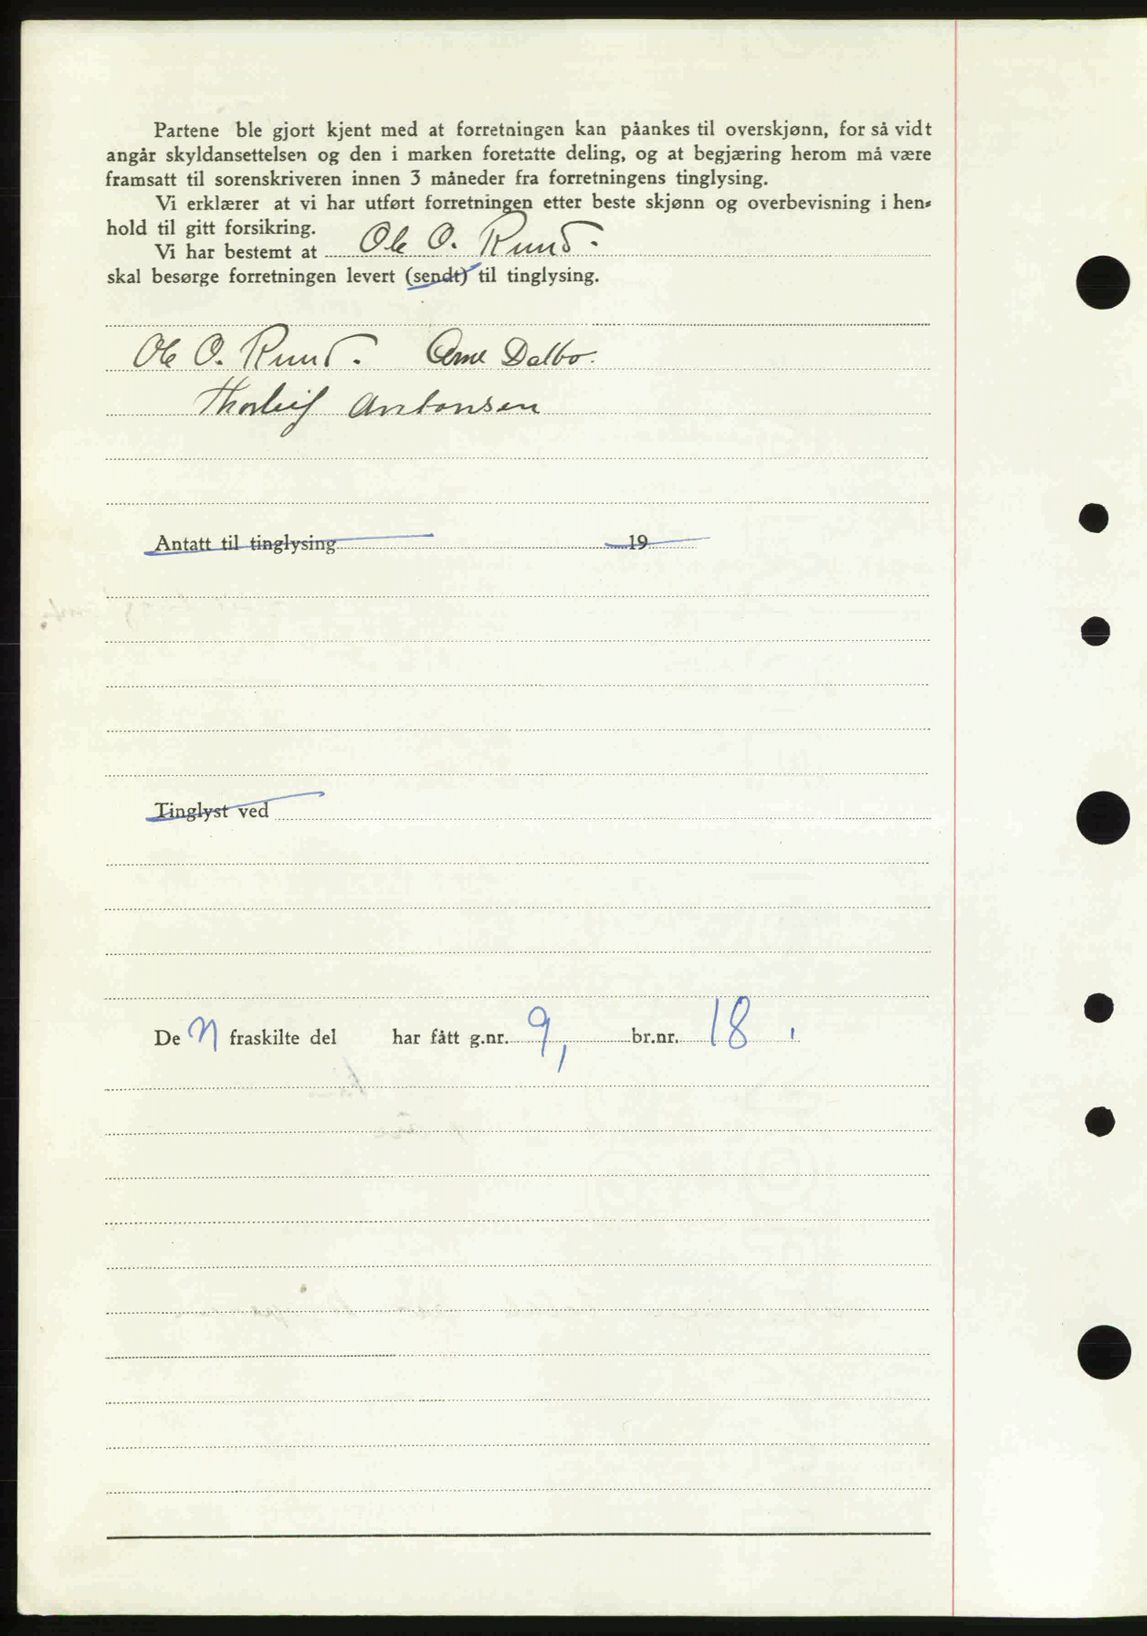 Partene ble gjort kjent med at forretningen kan påankes til overskjønn, for så vidt
angår skyldansettelsen og den i marken foretatte deling, og at begjæring herom må være
framsatt til sorenskriveren innen 3 måneder fra forretningens tinglysing.
Vi erklærer at vi har utført forretningen etter beste skjønn og overbevisning i hen-
hold til gitt forsikring.
Vi har bestemt at Ole O. Ruud.
skal besørge forretningen levert (sendt) til tinglysing.
Ole O. Ruud. Arne Dalbo.
Thorleif Antonsen
Antatt til tinglysing 19
Tinglyst ved
De n fraskilte del har fått g.nr. 9, br.nr. 18.